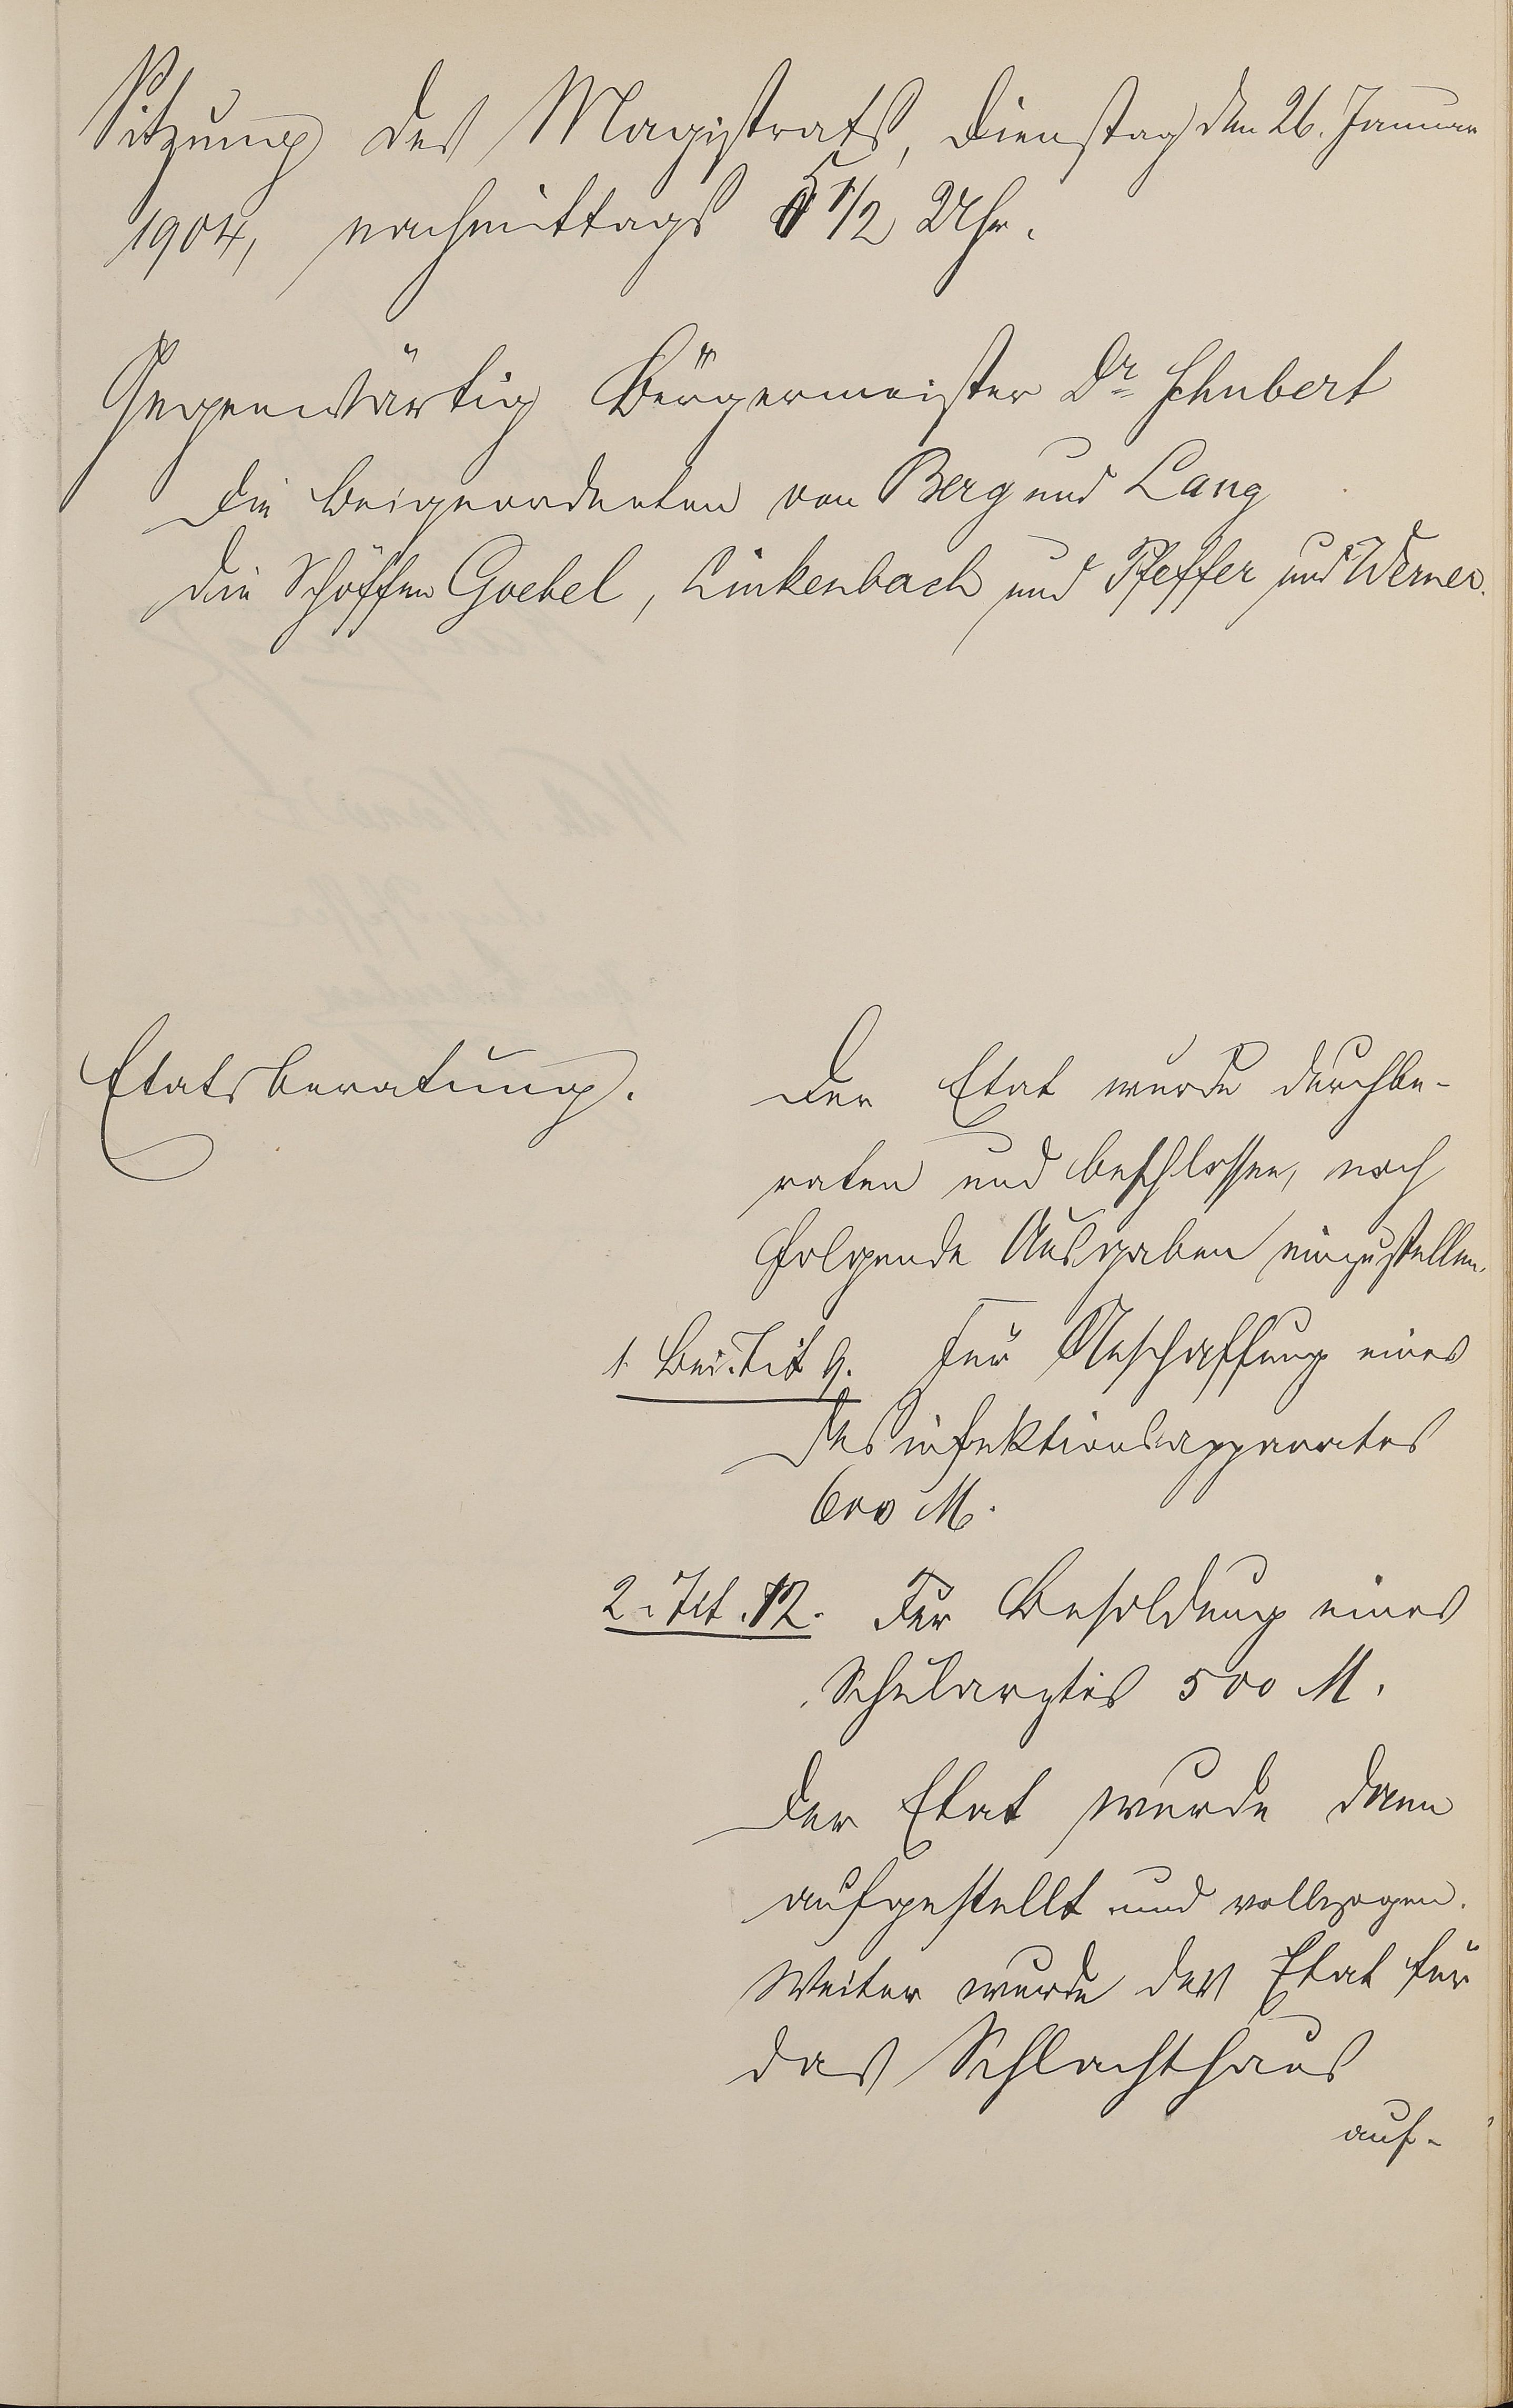 Sitzung des Magistrats, Dienstag den 26. Januar
1904, nachmittags 5 1/2 Uhr.
Gegenwärtig Bürgermeister Dr Schubert
Die Beigeordneten von Berg und Lang
Die Schöffen Goebel, Linkenbach und Pfeffer und Werner.
Etatsberatung.
Der Etat wurde durchbe-
raten und beschlossen, noch
folgende Ausgaben einzustellen.
1. Bei Tit 9. Für Anschaffung eines
Desinfektionsapparates
600 M.
2. Tit. 12. Für Besoldung eines
Schularztes 500 M.
Der Etat wurde dann
aufgestellt und vollzogen.
Weiter wurde der Etat für
das Schlachthaus
auf-